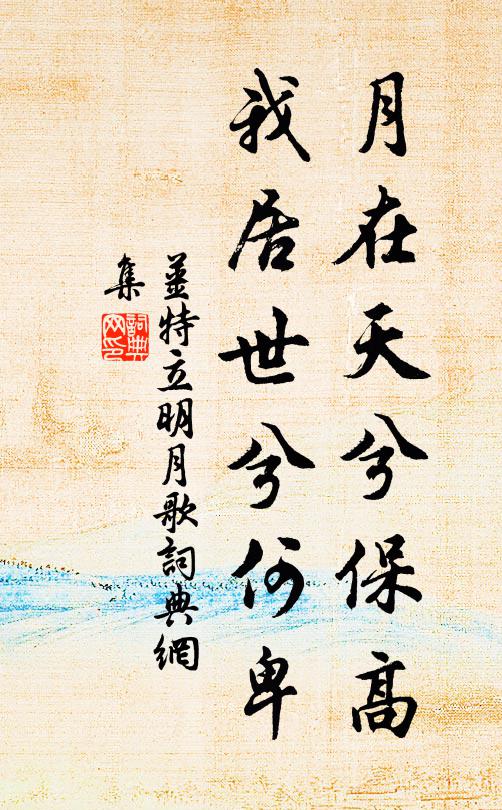 月在天兮保高
我居世兮何卑
姜特立明月歌詞典網
集
詞典
网印